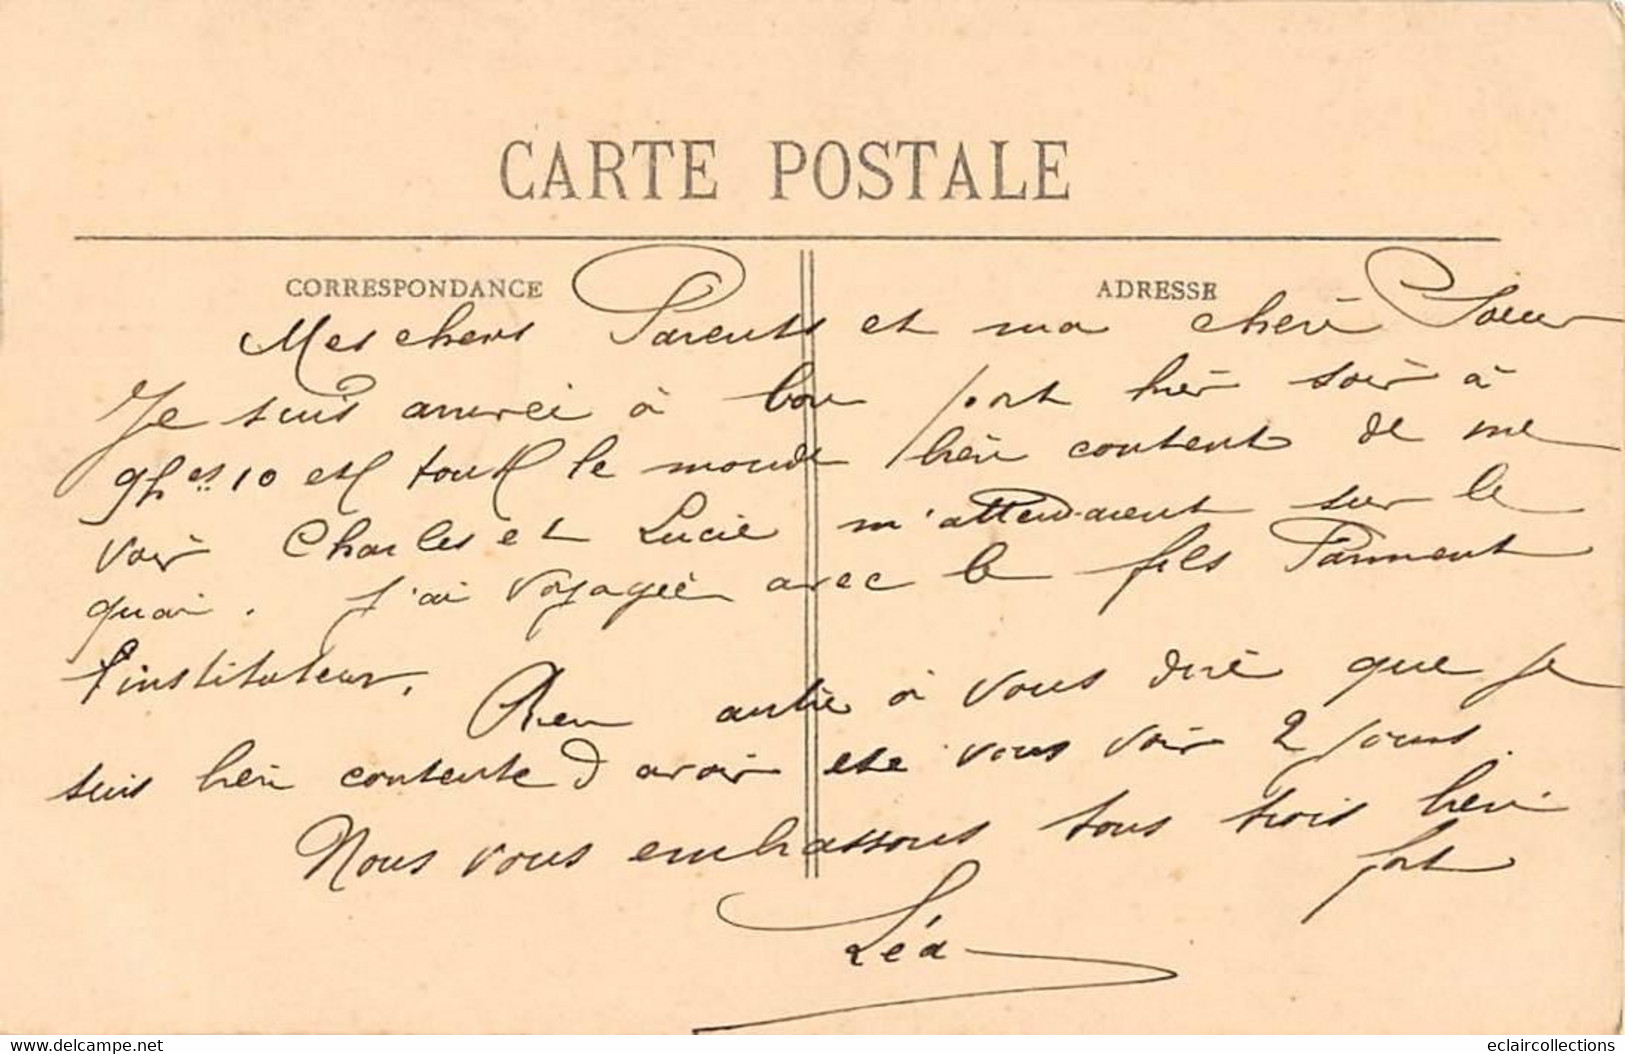 CARTE POSTALE
CORRESPONDANCE
ADRESSE
Mes chers Parents et ma chère Soeur
Je suis arrivée à bon port hier soir à
9h es 10 et tout le monde bien content de me
voir Charles et Lucie m'attendaient sur le
quai. J'ai voyagée avec le fils Parment
l'instituteur.
Rien autre à vous dire que je
suis bien contente d'avoir été vous voir 2 jours.
Nous vous embrassons tous trois bien
fort
Léa
Website: www.delcampe.net
eclaircollections